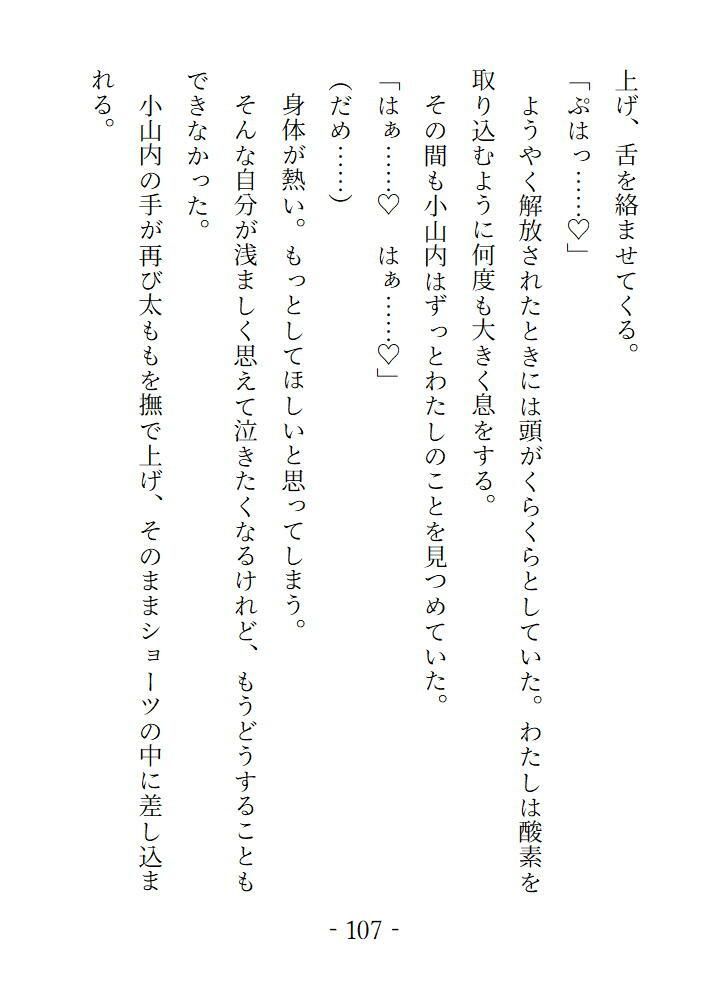 上げ、舌を絡ませてくる。
「ぷはっ……♡」
ようやく解放されたときには頭がくらくらとしていた。わたしは酸素を
取り込むように何度も大きく息をする。
その間も小山内はずっとわたしのことを見つめていた。
「はぁ……♡　はぁ……♡」
(だめ……)
身体が熱い。もっとしてほしいと思ってしまう。
そんな自分が浅ましく思えて泣きたくなるけれど、もうどうすることも
できなかった。
小山内の手が再び太ももを撫で上げ、そのままショーツの中に差し込ま
れる。
- 107 -